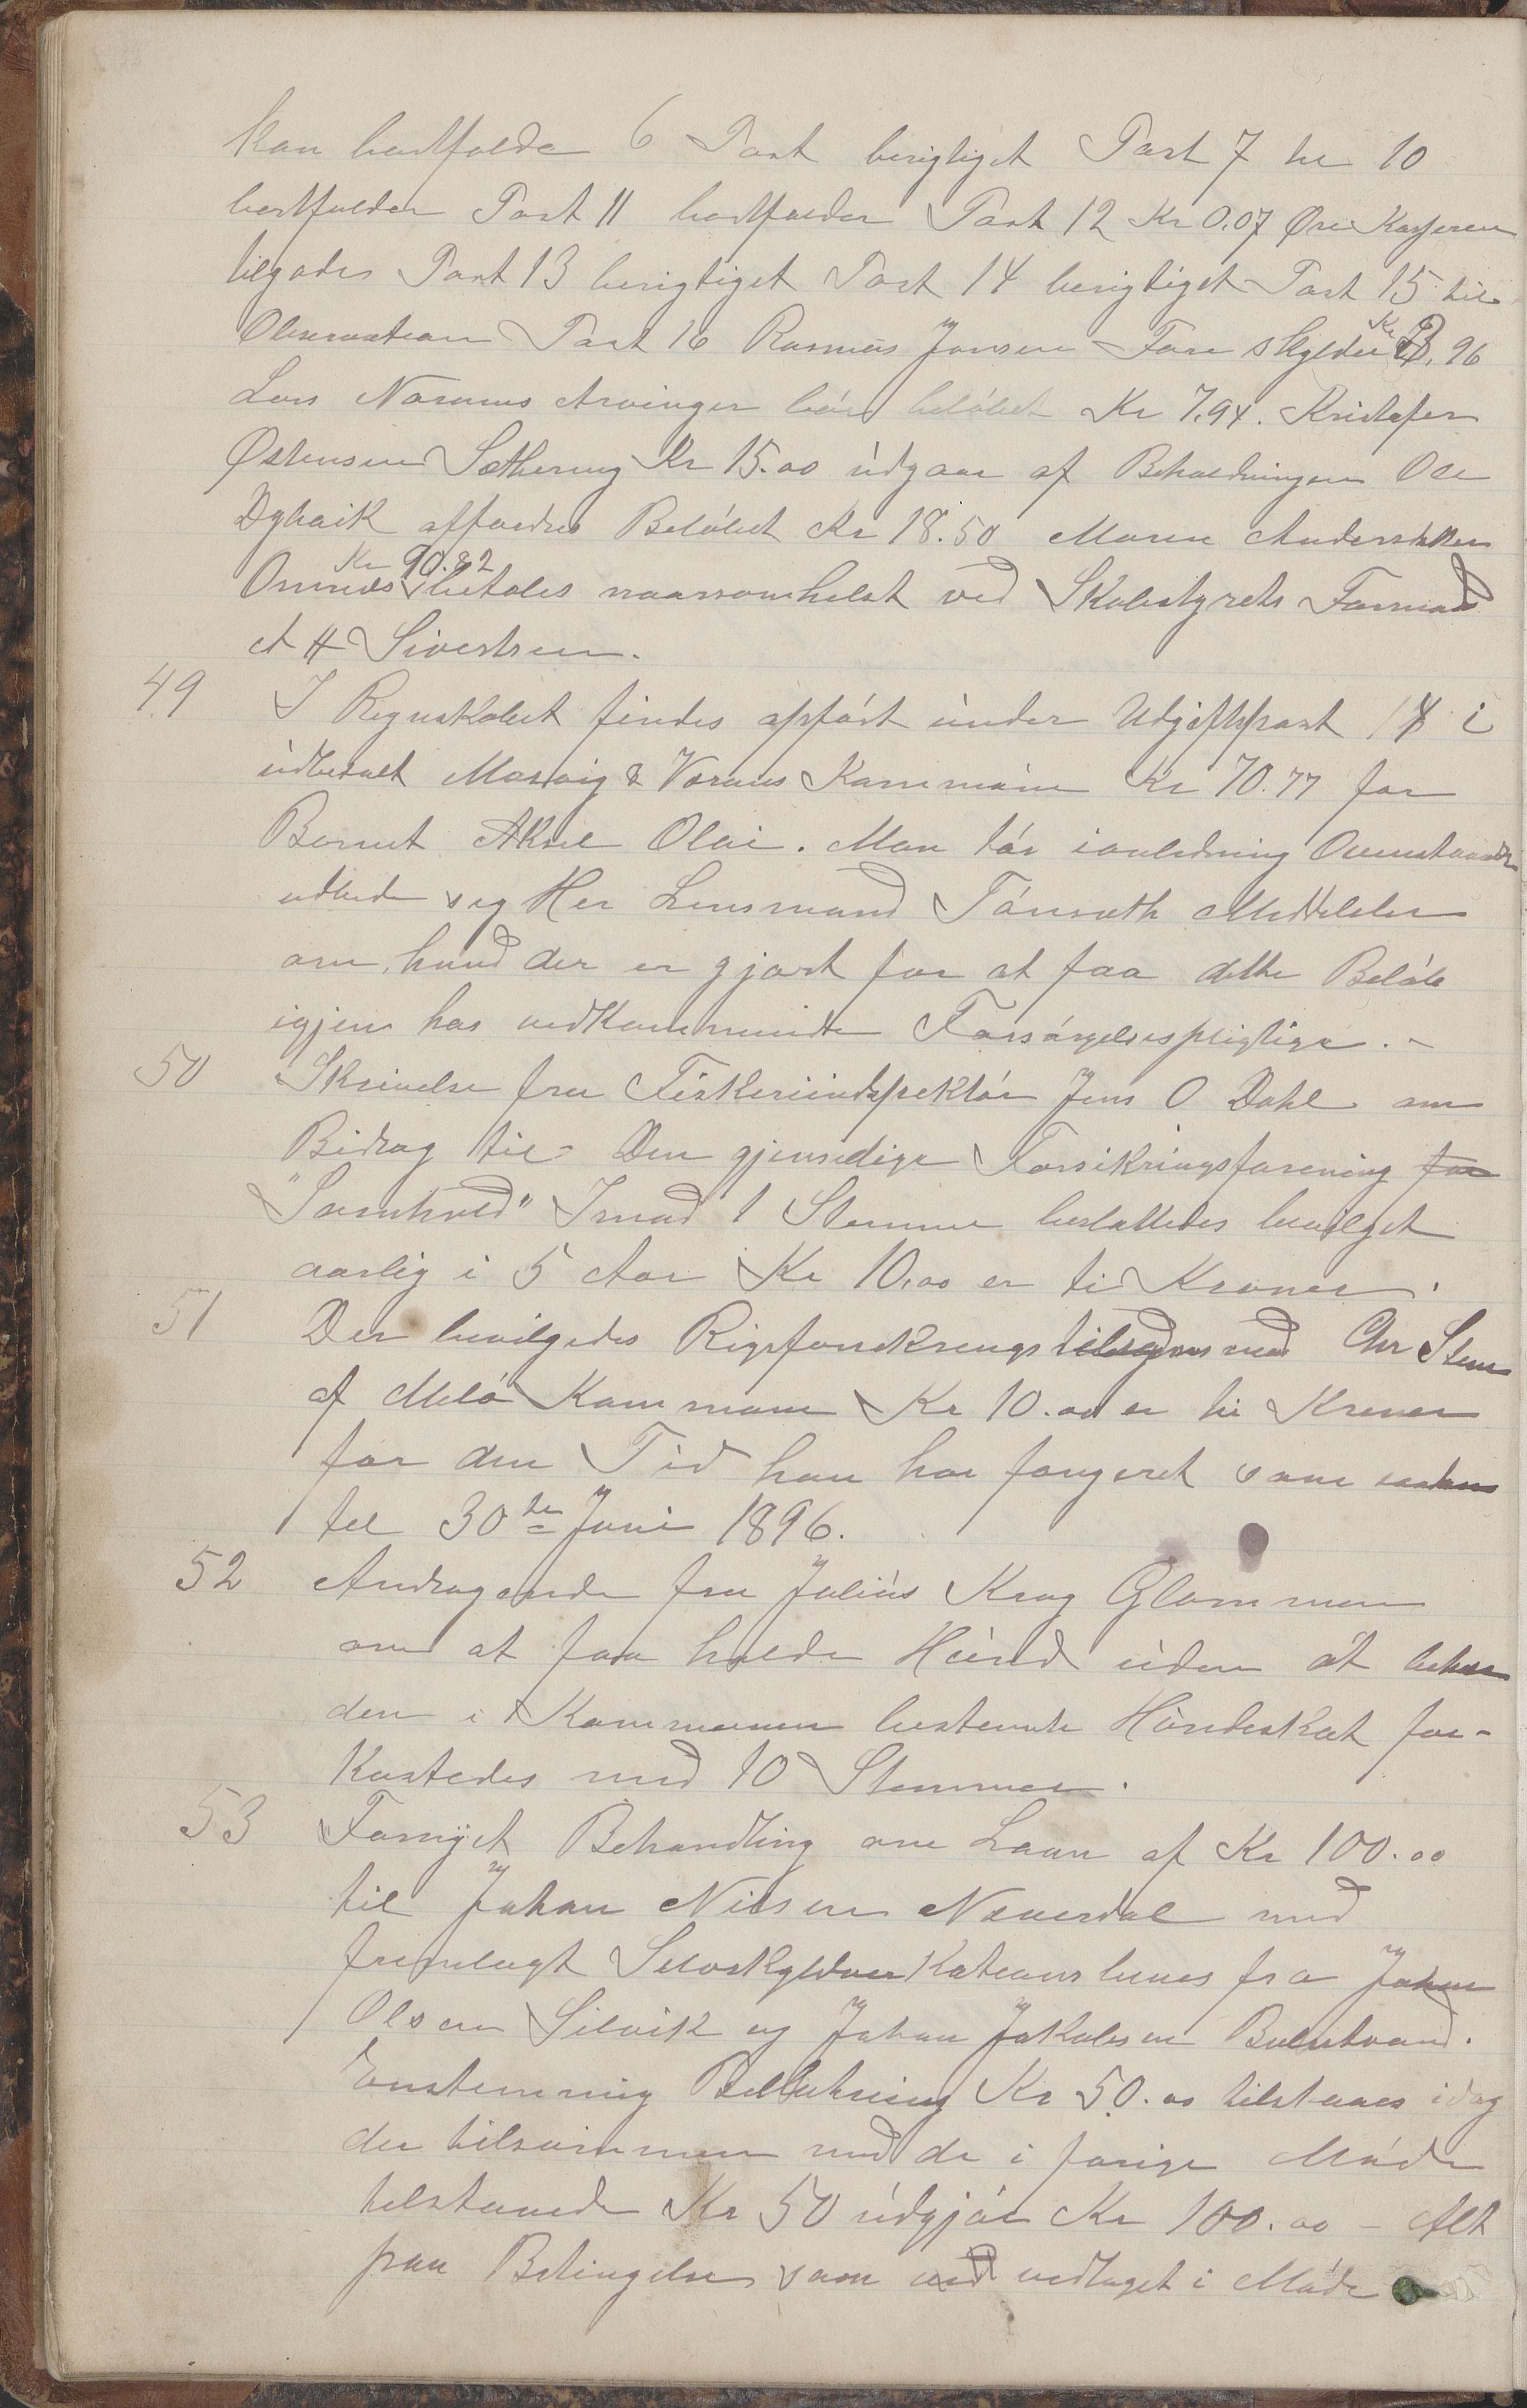 kan bortfalde 6 Post berigtiget Post 7 til 10
bortfalder Post 11 bortfalder Post 12 Kr 0.07 Øre Kasseren
tilgodes Post 13 berigtiget Post 14 berigtiget Post 15 til
Observation Post 16 Rasmus Jonsen Fore skylder Kr 96
Lars Arvinger bør beløbet Kr 7.94. Kristofer
Østensen Kr 15.00 udgaar af Beholdningen Ole
affordres Beløbet Kr 18.50 Maren Andersdatter
Ornnæs Kr 90.82 betales naarsomhelst ved Skolestyrets Formand
A H Sivertsen.
49 I Regnskabet findes opført under Udgiftspost i
udbetalt Masvig & Værans Kommune Kr 70.77 for
Barnet Aksel Olai. Man tør ianledning Ovenstaaende
udbede sig Her Lensmand Meddelelse
om hvad der er gjort for at faa dette Beløb
igjen hos vedkommende Forsørgelsespligtige. -
50 Skrivelse fra Fiskeriindspektør Jens O Dahl om
Bidrag til Den gjensidige Forsikringsforening for
"Samhold" Imod 1 Stemme besluttedes bevilget
aarlig i 5 Aar Kr 10.00 er ti Kroner.
51 Der bevilgedes Chr Steen
af Melø Kommune Kr 10.00 er ti Kroner
for den Tid han har fungeret som saadan
til 30te Juni 1896.
52 Andragende fra Julius Krog Glommen
om at faa holde Hund uden at betale
den i Kommunen bestemte Hundeskat for-
kastedes med 10 Stemmer.
53 Fornyet Behandling om Laan af Kr 100.00
til Johan Nilsen Næverdal med
fremlagt Selvskyldnerkationsbevis fra Johan
Olsen Selvik og Johan Jakobsen
Enstemmig Beslutning Kr 50.00 tilstaaes idag
der tilsammen med de i forige Møde
tilstaaede Kr 50 udgjør Kr 100.00 - Alt
paa Betingelse som ved vedtaget i Møde